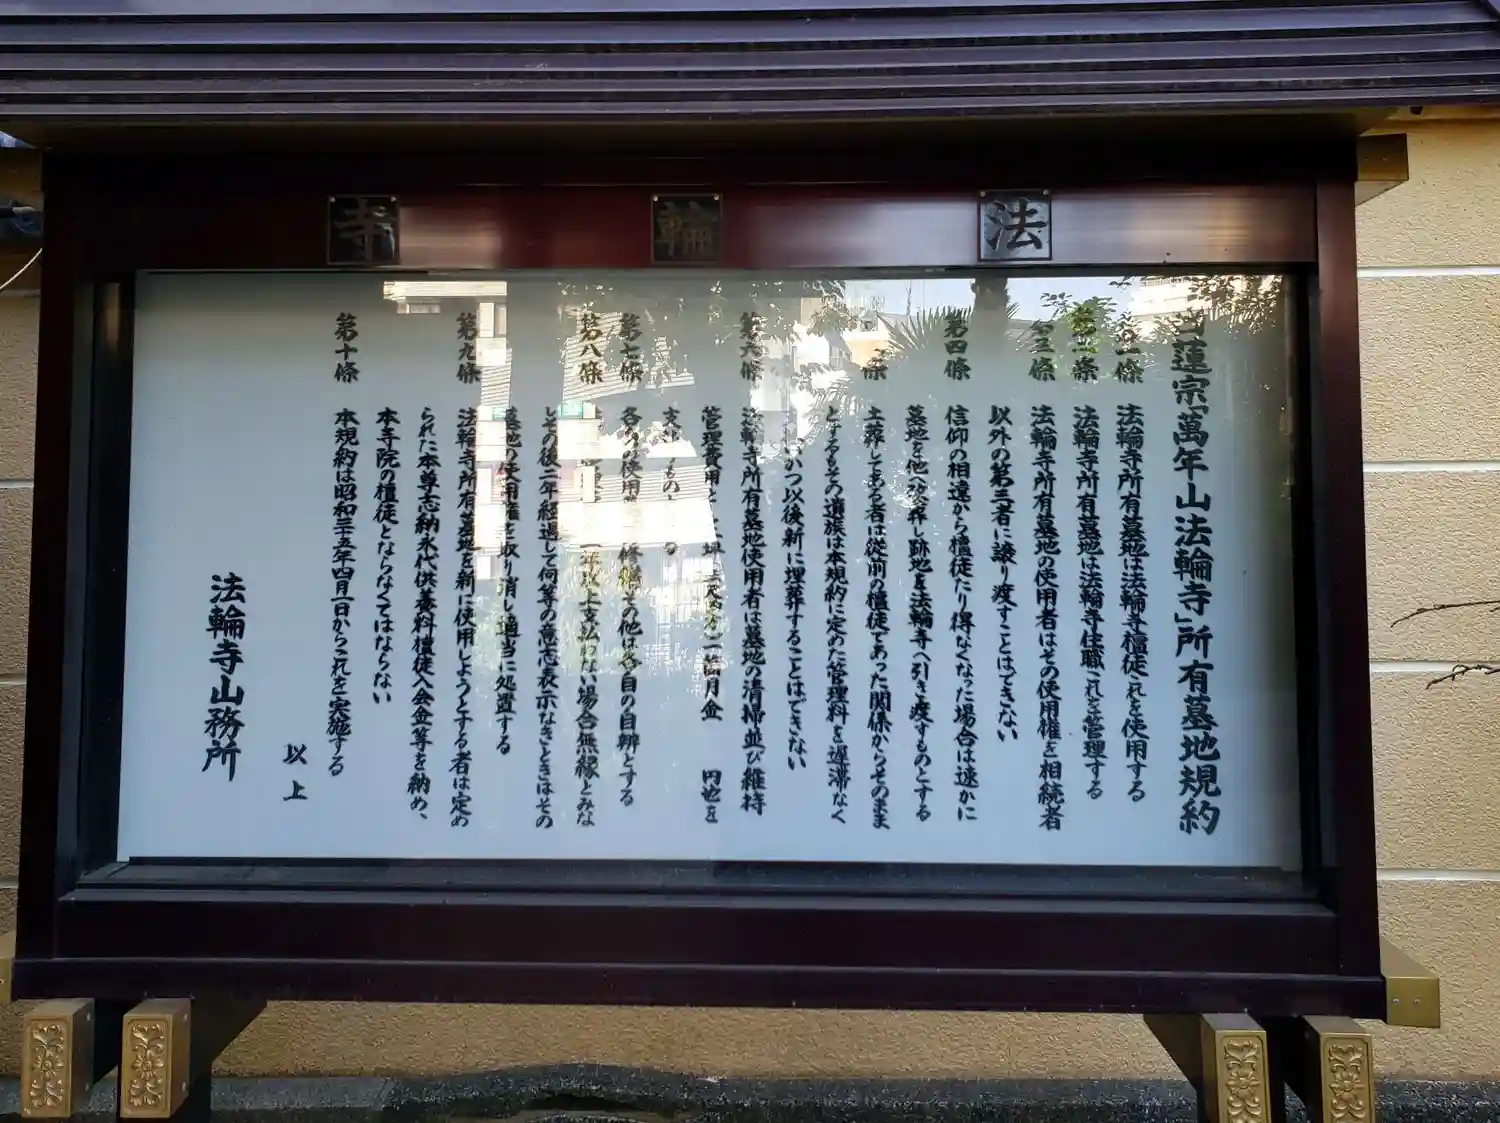 法輪寺
日蓮宗「萬年山法輪寺」所有墓地規約
第一條 法輪寺所有墓地は法輪寺檀徒これを使用する
第二條 法輪寺所有墓地は法輪寺住職これを管理する
第三條 法輪寺所有墓地の使用者はその使用権を相続者
以外の第三者に譲り渡すことはできない
第四條 信仰の相違から檀徒たり得なくなった場合は速かに
墓地を他へ改葬し跡地を法輪寺へ引き渡すものとする
條 土葬してある者は従前の檀徒であった関係からそのまま
とするもその遺族は本規約に定めた管理料を遅滞なく
かつ以後新に埋葬することはできない
第六條 法輪寺所有墓地使用者は墓地の清掃並び維持
管理費用として一坪 一箇月金 円也を
支 もの る
第七條 各 の使用 修繕その他は各自の自辨とする
第八條 一年以上支払わない場合無縁とみな
しその後二年経過して何等の意志表示なきときはその
墓地の使用権を取り消し適当に処置する
第九條 法輪寺所有墓地を新に使用しようとする者は定め
られた本尊志納永代供養料檀徒入会金等を納め、
本寺院の檀徒とならなくてはならない
第十條 本規約は昭和三十五年四月一日からこれを実施する
以上
法輪寺山務所